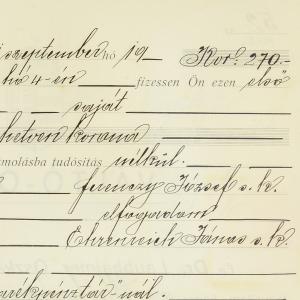 szeptember hó 19 Kor. 270.-
hó 4-én fizessen Ön ezen első
saját
hetven korona
zámolásba tudósítás nélkül.
ferenczy József s.k.
elfogadom
Ehrenreich János s.k.
nál.